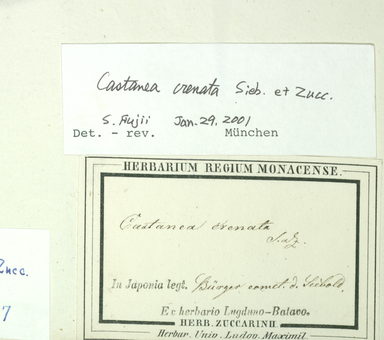 Castanea crenata Sieb. et Zucc.
S. Fujii Jan. 29, 2001
Det. - rev. München
HERBARIUM REGIUM MONACENSE.
Castanea crenata
S. & Z.
In Japonia legt. Bürger comct. d. Siebold.
E c herbario Lugduno-Batavo.
HERB. ZUCCARINII
Herbar. Univ. Ludov. Maximil.
Zucc.
7